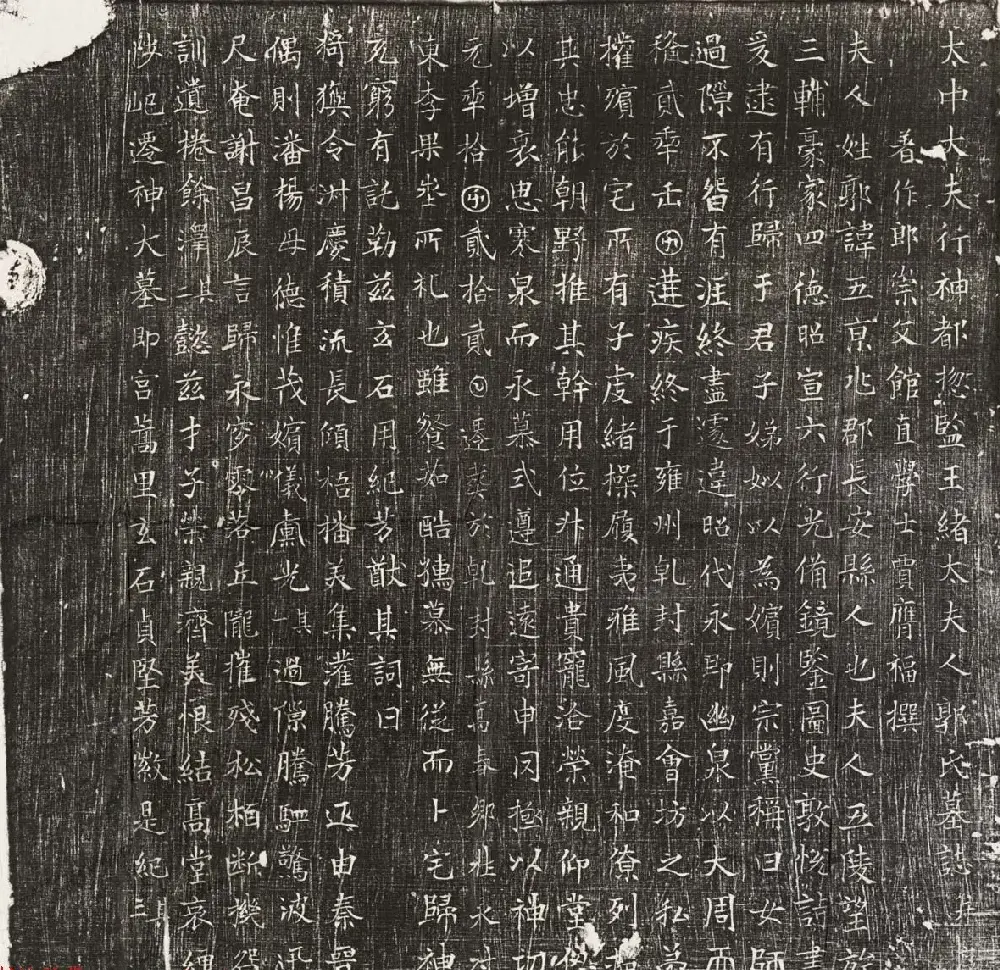 太中大夫行神都揔監王緒太夫人郭氏墓誌并
著作郎崇文館直學士賈膺福撰
夫人姓郭諱五京兆郡長安縣人也夫人五陵望族
三輔豪家四德昭宣六行光備鏡鑒圖史敦悅詩書
爰逮有行歸于君子娣姒以為嬪則宗黨稱曰女師
過隙不留有涯終盡遽違昭代永即幽泉以大周而
稔貳𠡦五㊉遘疾終于雍州乹封縣嘉會坊之私第
權殯於宅所有子虔緒操履夷雅風度淹和僚列
其忠能朝野推其幹用位升通貴寵洽榮親仰堂
以增哀思寒泉而永慕式遵追遠寄申罔極以神功
元𠡦拾囝貳拾貳㋨遷葬於乹封縣高春鄉壯水
東李果埊所礼也雖餐茹酷攜慕無從而卜宅歸神
充窮有託勒茲玄石用紀芳猷其詞曰
猗歟令淑慶積流長傾梧播美集灌騰芳迊由秦晉
偶則潘楊母德惟茂嬪儀彌光其一過隙騰駟驚波迅
尺奄謝昌辰言歸永穸零落丘隴摧殘松栢断機
訓遺捲餘澤其二懿茲才子榮親濟美恨結高堂哀纏
陟屺遷神大墓即宮蒿里玄石貞堅芳徽是紀其三